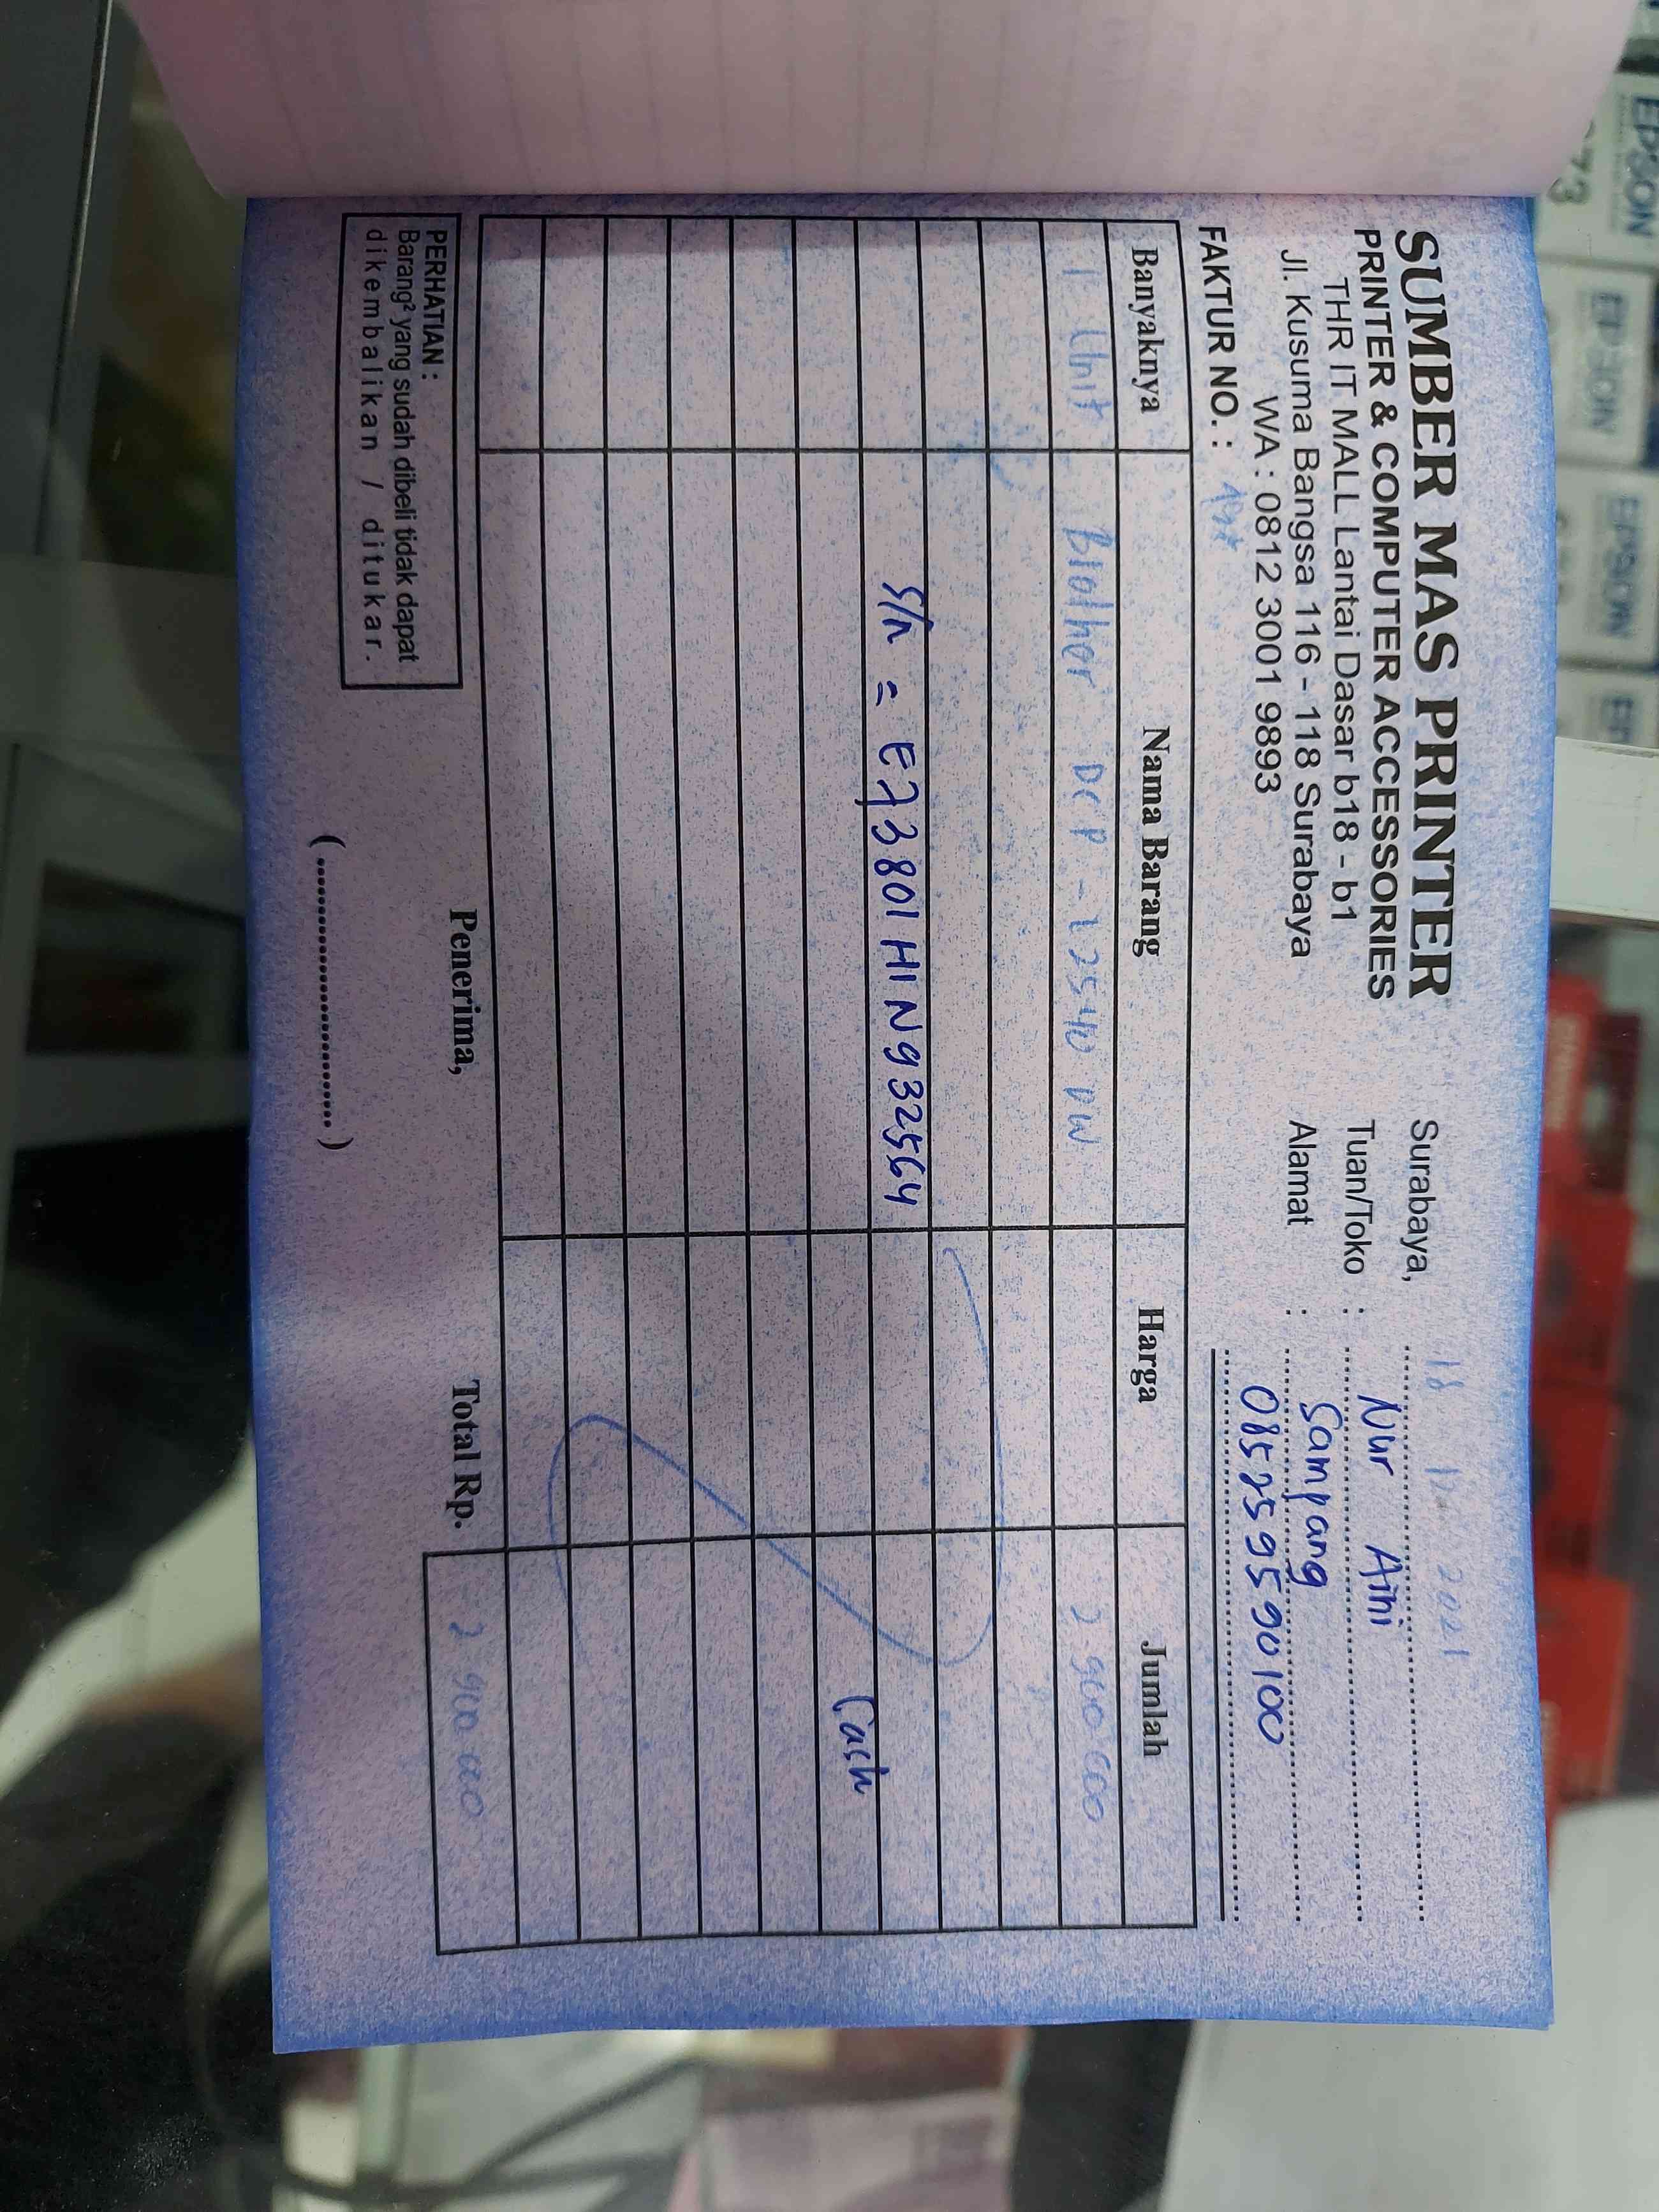 SUMBER MAS PRINTER
PRINTER & COMPUTER ACCESSORIES
THR IT MALL Lantai Dasar b18 - b1
Jl. Kusuma Bangsa 116 - 118 Surabaya
WA : 0812 3001 9893
Surabaya, 18 2021
Tuan/Toko : Nur Aini
Alamat : Sampang
085259590100
FAKTUR NO. :
Banyaknya Nama Barang Harga Jumlah
1 Unit Brother DCP - L2540 DW 2.900.000
S/n = E73801H1N932564
Cash
Total Rp. 2.900.000
PERHATIAN :
Barang² yang sudah dibeli tidak dapat
dikembalikan / ditukar.
Penerima,
(..............................)
EPSON
673
EPSON
EPSON